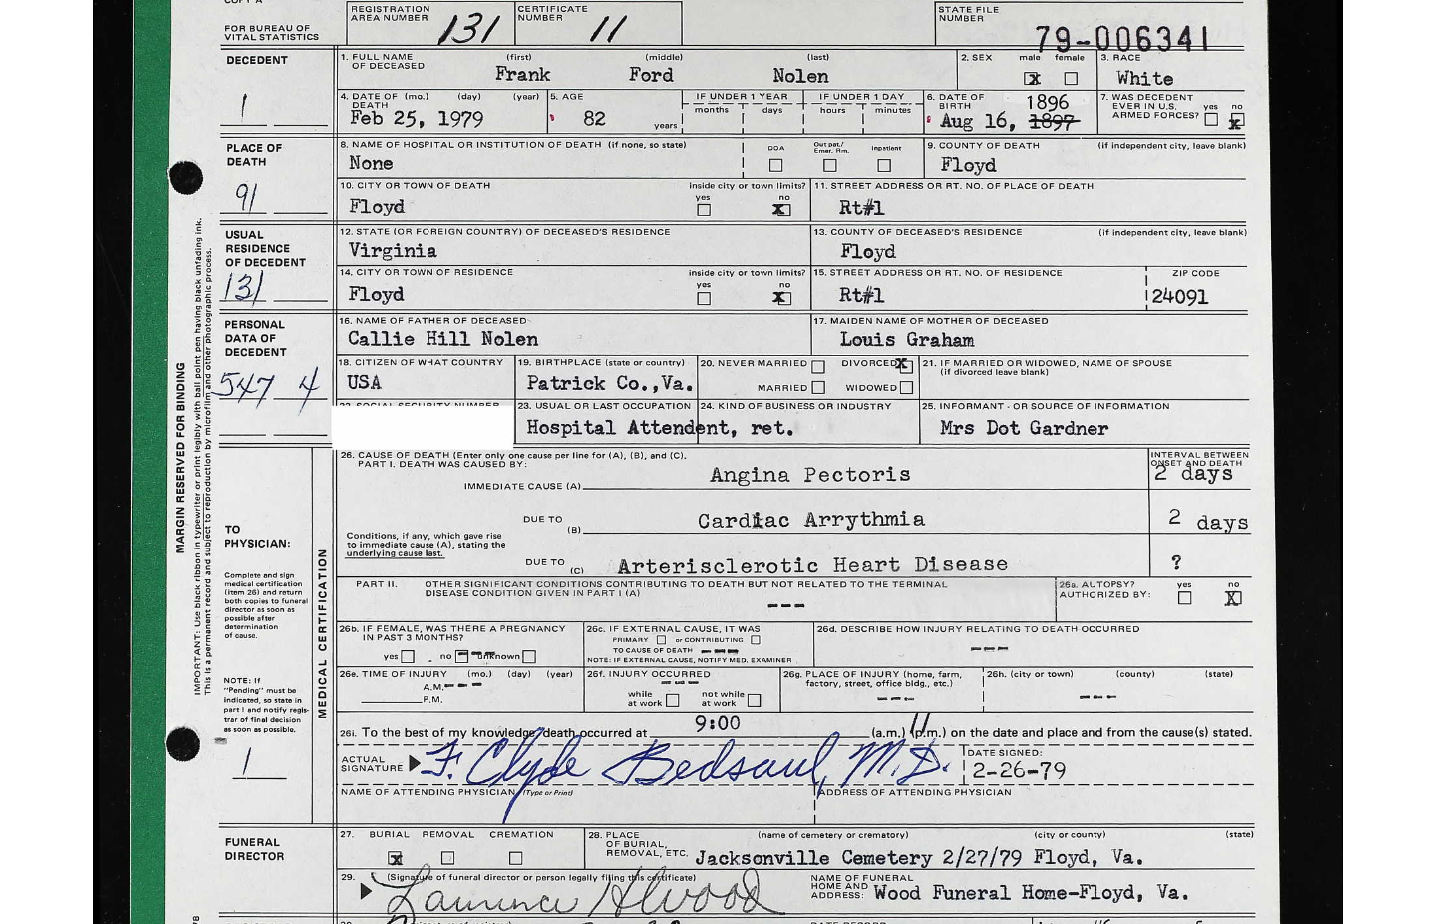 COPY A
FOR BUREAU OF
VITAL STATISTICS
REGISTRATION
AREA NUMBER 131
CERTIFICATE
NUMBER 11
STATE FILE
NUMBER
79-006341
DECEDENT
1
1. FULL NAME (first) (middle) (last)
OF DECEASED
Frank Ford Nolen
2. SEX male female
x
3. RACE
White
4. DATE OF (mo.) (day) (year)
DEATH
Feb 25, 1979
5. AGE
82 years
IF UNDER 1 YEAR
months days
IF UNDER 1 DAY
hours minutes
6. DATE OF
BIRTH 1896
Aug 16, 1897
7. WAS DECEDENT
EVER IN U.S. yes no
ARMED FORCES? x
PLACE OF
DEATH
91
8. NAME OF HOSPITAL OR INSTITUTION OF DEATH (if none, so state)
None
DOA Out pat./ Emer. Rm. Inpatient
9. COUNTY OF DEATH (if independent city, leave blank)
Floyd
10. CITY OR TOWN OF DEATH inside city or town limits?
yes no
Floyd x
11. STREET ADDRESS OR RT. NO. OF PLACE OF DEATH
Rt#1
USUAL
RESIDENCE
OF DECEDENT
131
12. STATE (OR FOREIGN COUNTRY) OF DECEASED'S RESIDENCE
Virginia
13. COUNTY OF DECEASED'S RESIDENCE (if independent city, leave blank)
Floyd
14. CITY OR TOWN OF RESIDENCE inside city or town limits?
yes no
Floyd x
15. STREET ADDRESS OR RT. NO. OF RESIDENCE ZIP CODE
Rt#1 24091
PERSONAL
DATA OF
DECEDENT
547 4
16. NAME OF FATHER OF DECEASED
Callie Hill Nolen
17. MAIDEN NAME OF MOTHER OF DECEASED
Louis Graham
18. CITIZEN OF WHAT COUNTRY
USA
19. BIRTHPLACE (state or country)
Patrick Co.,Va.
20. NEVER MARRIED DIVORCED x
MARRIED WIDOWED
21. IF MARRIED OR WIDOWED, NAME OF SPOUSE
(if divorced leave blank)
22. SOCIAL SECURITY NUMBER
23. USUAL OR LAST OCCUPATION
24. KIND OF BUSINESS OR INDUSTRY
Hospital Attendent, ret.
25. INFORMANT - OR SOURCE OF INFORMATION
Mrs Dot Gardner
MARGIN RESERVED FOR BINDING
IMPORTANT: Use black ribbon in typewriter or print legibly with ball point pen having black unfading ink.
This is a permanent record and subject to reproduction by microfilm and other photographic process.
TO
PHYSICIAN:
Complete and sign
medical certification
(item 26) and return
both copies to funeral
director as soon as
possible after
determination
of cause.
NOTE: If
"Pending" must be
indicated, so state in
part I and notify regis-
trar of final decision
as soon as possible.
1
MEDICAL CERTIFICATION
26. CAUSE OF DEATH (Enter only one cause per line for (A), (B), and (C).
PART I. DEATH WAS CAUSED BY:
INTERVAL BETWEEN
ONSET AND DEATH
IMMEDIATE CAUSE (A) Angina Pectoris 2 days
DUE TO (B) Cardiac Arrythmia 2 days
Conditions, if any, which gave rise
to immediate cause (A), stating the
underlying cause last.
DUE TO (C) Arterisclerotic Heart Disease ?
PART II. OTHER SIGNIFICANT CONDITIONS CONTRIBUTING TO DEATH BUT NOT RELATED TO THE TERMINAL
DISEASE CONDITION GIVEN IN PART I (A)
---
26a. AUTOPSY? yes no
AUTHORIZED BY: X
26b. IF FEMALE, WAS THERE A PREGNANCY
IN PAST 3 MONTHS?
yes no unknown
26c. IF EXTERNAL CAUSE, IT WAS
PRIMARY or CONTRIBUTING
TO CAUSE OF DEATH ---
NOTE: IF EXTERNAL CAUSE, NOTIFY MED. EXAMINER
26d. DESCRIBE HOW INJURY RELATING TO DEATH OCCURRED
---
26e. TIME OF INJURY (mo.) (day) (year)
A.M. ---
P.M.
26f. INJURY OCCURRED
---
while at work not while at work
26g. PLACE OF INJURY (home, farm,
factory, street, office bldg., etc.)
---
26h. (city or town) (county) (state)
---
26i. To the best of my knowledge, death occurred at 9:00 (a.m.) (p.m.) on the date and place and from the cause(s) stated.
ACTUAL
SIGNATURE F. Clyde Bedsaul, M.D.
DATE SIGNED:
2-26-79
NAME OF ATTENDING PHYSICIAN (Type or Print)
ADDRESS OF ATTENDING PHYSICIAN
FUNERAL
DIRECTOR
27. BURIAL REMOVAL CREMATION
x
28. PLACE (name of cemetery or crematory) (city or county) (state)
OF BURIAL,
REMOVAL, ETC. Jacksonville Cemetery 2/27/79 Floyd, Va.
29. (Signature of funeral director or person legally filing this certificate)
NAME OF FUNERAL
HOME AND
ADDRESS: Wood Funeral Home-Floyd, Va.